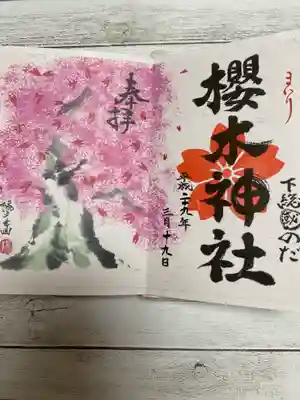 まいり
下総國のだ
櫻木神社
平成二十九年
三月十九日
奉拝